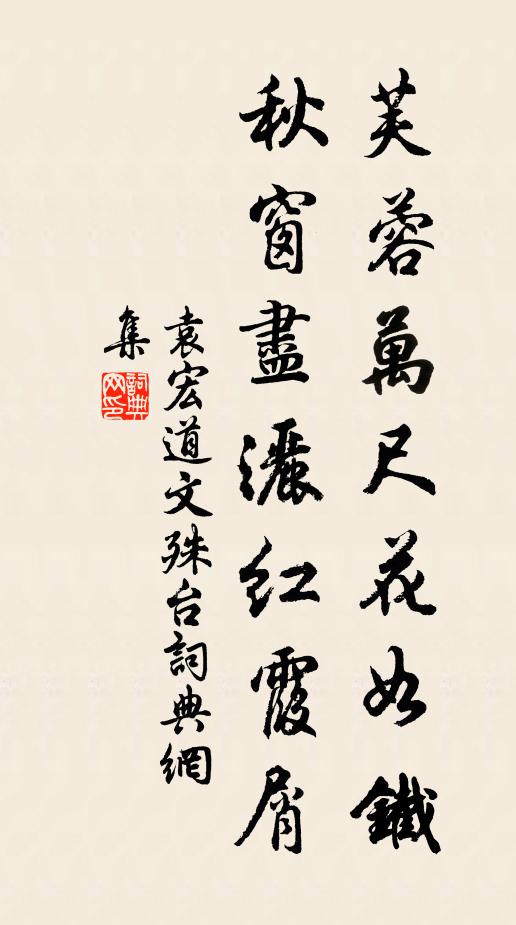 芙蓉萬尺花如鐵
秋窗盡灑紅霞屑
袁宏道文殊台詞典網
集
詞典
网印